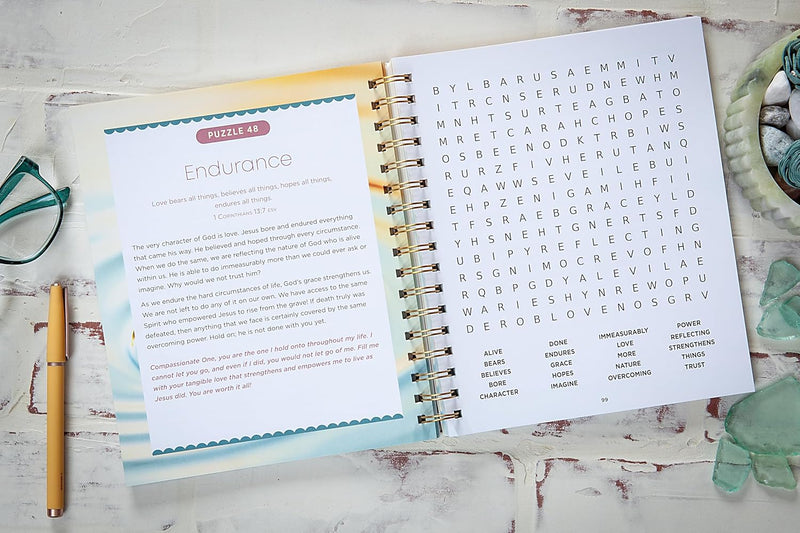 PUZZLE 48
Endurance
Love bears all things, believes all things, hopes all things,
endures all things.
1 CORINTHIANS 13:7 ESV
The very character of God is love. Jesus bore and endured everything
that came his way. He believed and hoped through every circumstance.
When we do the same, we are reflecting the nature of God who is alive
within us. He is able to do immeasurably more than we could ever ask or
imagine. Why would we not trust him?
As we endure the hard circumstances of life, God's grace strengthens us.
We are not left to do any of it on our own. We have access to the same
Spirit who empowered Jesus to rise from the grave! If death truly was
defeated, then anything that we face is certainly covered by the same
overcoming power. Hold on; he is not done with you yet.
Compassionate One, you are the one I hold onto throughout my life. I
cannot let you go, and even if I did, you would not let go of me. Fill me
with your tangible love that strengthens and empowers me to live as
Jesus did. You are worth it all!
B Y L B A R U S A E M M I T V
I T R C N S E R U D N E W H M
M N H T S U R T E A G B A T O
M R E T C A R A H C H O P E S
O S B E E N O D K T R B I W S
R U R Z F I V H E R U T A N Q
E Q A W W S E V E I L E B U I
E H P Z E N I G A M I H F I I
T F S R A E B G R A C E Y L D
Y H S N E H T G N E R T S F D
U B I P Y R E F L E C T I N G
R S G N I M O C R E V O F H N
R Q B P G D Y A L E V I L A E
W A R I E S H Y N R E W O P U
D E R O B L O V E N O S G R V
ALIVE DONE IMMEASURABLY POWER
BEARS ENDURES LOVE REFLECTING
BELIEVES GRACE MORE STRENGTHENS
BORE HOPES NATURE THINGS
CHARACTER IMAGINE OVERCOMING TRUST
99